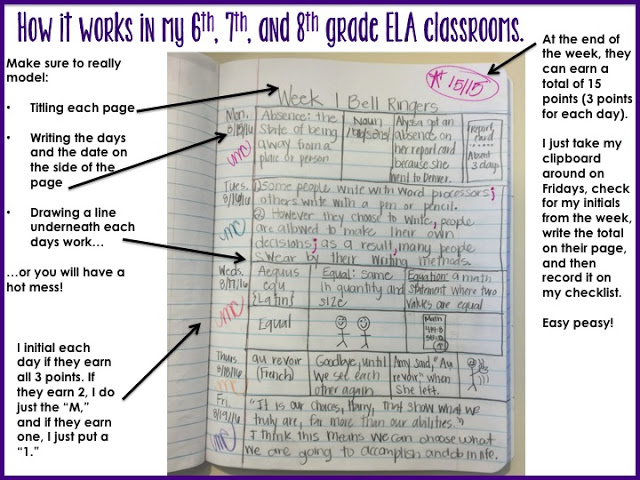 How it works in my 6th, 7th, and 8th grade ELA classrooms.
Make sure to really
model:
• Titling each page
• Writing the days
and the date on
the side of the
page
• Drawing a line
underneath each
days work…
…or you will have a
hot mess!
I initial each
day if they earn
all 3 points. If
they earn 2, I do
just the “M,”
and if they earn
one, I just put a
“1.”
15/15
Week 1 Bell Ringers
Mon.
Absence: the
state of being
away from a
place or person
Noun
Alyssa got an
absence on
her report card
because she
went to Denver.
report
card
Absent
3 days
Tues.
① Some people write with word processors;
others write with a pen or pencil.
② However they choose to write, people
are allowed to make their own
decisions; as a result, many people
swear by their writing methods.
Weds.
8/17/16
Aequus
equ
(Latin)
Equal: same
in quantity and
size
Equation: a math
statement where two
values are equal
Equal
Math
Thurs.
8/18/16
au revoir
(French)
Goodbye, until
we see each
other again
Amy said, "Au
revoir" when
she left.
Fri.
8/19/16
"It is our choices, Harry, that show what we
truly are, far more than our abilities."
I think this means we can choose what
we are going to accomplish and do in life.
At the end of
the week, they
can earn a
total of 15
points (3 points
for each day).
I just take my
clipboard
around on
Fridays, check
for my initials
from the week,
write the total
on their page,
and then
record it on
my checklist.
Easy peasy!